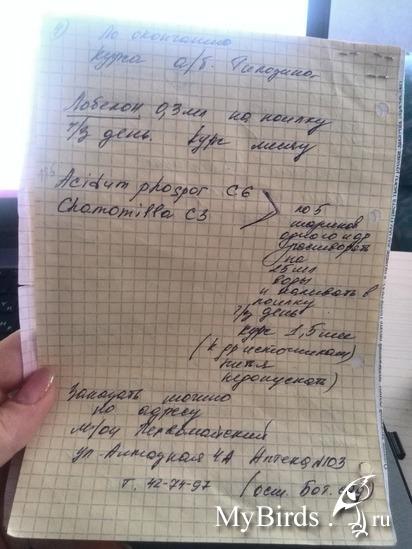 1) По окончанию
курса а/б. Тилозина,
Лобелон 0,3 мл на поилку
ч/з день. Курс месяц
Acidum phospor C6
Chamomilla C3
по 5
шариков
одного и др
растворять
на
25 мл
воды
и наливать в
поилку
ч/з день
курс 1,5 мес
(к др источникам
питья
недопускать)
Заказать можно
по адресу
м/он Первомайский
ул. Алмазная 4А Аптека №103
т. 42-74-97 /ост. Бот. сад
MyBirds.ru